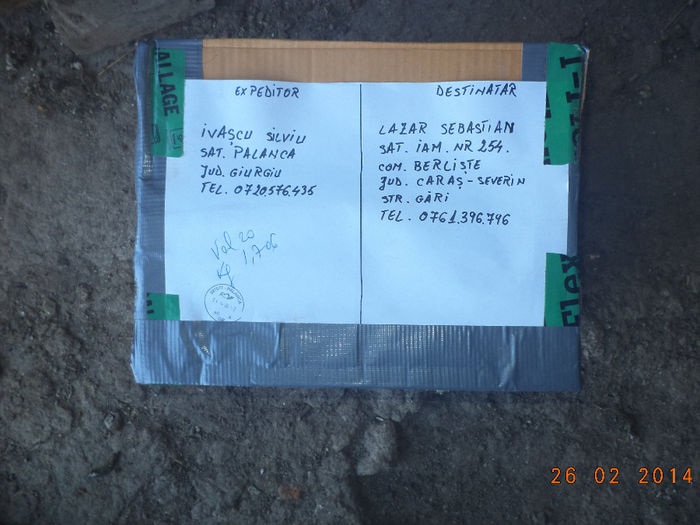 EXPEDITOR
IVAȘCU SILVIU
SAT. PALANCA
JUD. GIURGIU
TEL. 0720.576.435
Val 20
1,706
Kg
DESTINATAR
LAZAR SEBASTIAN
SAT. IAM. NR 254.
COM. BERLIȘTE
JUD. CARAȘ-SEVERIN
STR. GĂRI
TEL. 0761.396.746
ALLAGE
Flex
26 02 2014